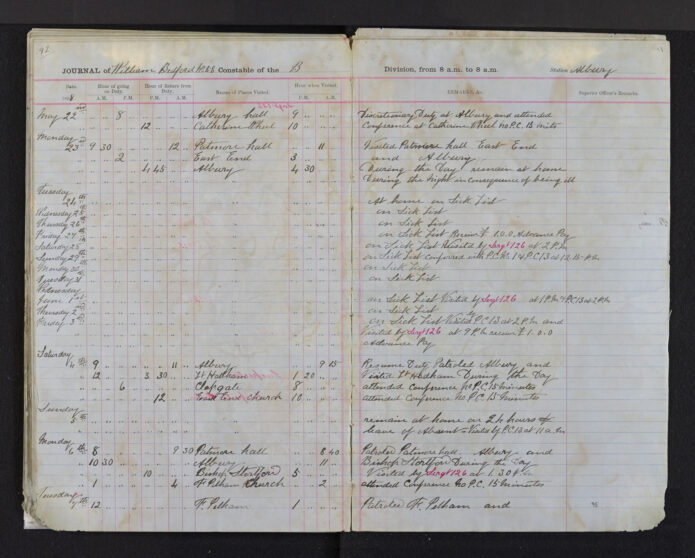 42
JOURNAL of William Bedford No 68 Constable of the B Division, from 8 a.m. to 8 a.m. Station Albury
Date. Hour of going on Duty. Hour of Return from Duty. Names of Places Visited. Hour when Visited REMARKS, &c. Superior Officer's Remarks.
A.M. P.M. P.M. A.M. P.M. A.M.
May 22nd 8 Albury hall 9 Discretionary Duty at Albury and attended
12 Catherine Wheel 10 Conference at Catherine Wheel no P.C. 15 mits
Monday
23rd 9 30 12 Patmore hall 11 Visited Patmore hall East End
2 East End 3 and Albury
4 45 Albury 4 30 During the Day remain at home
During the night in consequence of being ill
Tuesday
24th At home on Sick List
Wednesday 25th on Sick List
Thursday 26th on Sick List
Friday 27th on Sick List Receive £ 1.0.0 Advance Pay
Saturday 28th on Sick List Visited by Sergt 126 at 2 P.m.
Sunday 29th on Sick List conferred with P.C. 14 P.C 13 at 12.15 P.m.
Monday 30th on Sick List
Tuesday 31 on Sick List
Wednesday
June 1st on Sick List Visited by Sergt 126 at 1 P.m. P.C 13 at 2 P.m
Thursday 2nd on Sick List
Friday 3rd on Sick List Visited by P.C 13 at 2 P.m and
Visited by Sergt 126 at 7 P.m receive £ 1.0.0
Advance Pay
Saturday
4th 9 11 Albury 9 15 Resume Duty Patroled Albury and
12 3 30 Lt Hadham 1 20 Visited Lt Hadham During the Day
6 Clapgate 8 attended Conference No P.C. 15 minutes
12 East End church 10 attended Conference No P.C. 15 minutes
Sunday
5th remain at home on 24 hours
leave of Absent Visited by P.C 13 at 11 a.m
Monday
6th 8 9 30 Patmore hall 8 40 Patroled Patmore hall Albury and
10 30 Albury 11 Bishop Stortford During the Day
10 Bishop Stortford 5 Visited by Sergt 126 at 1.30 P.m
1 4 F. Pelham Church 2 attended Conference No P.C. 15 minutes
Tuesday
7th 12 F. Pelham 1 Patroled F. Pelham and